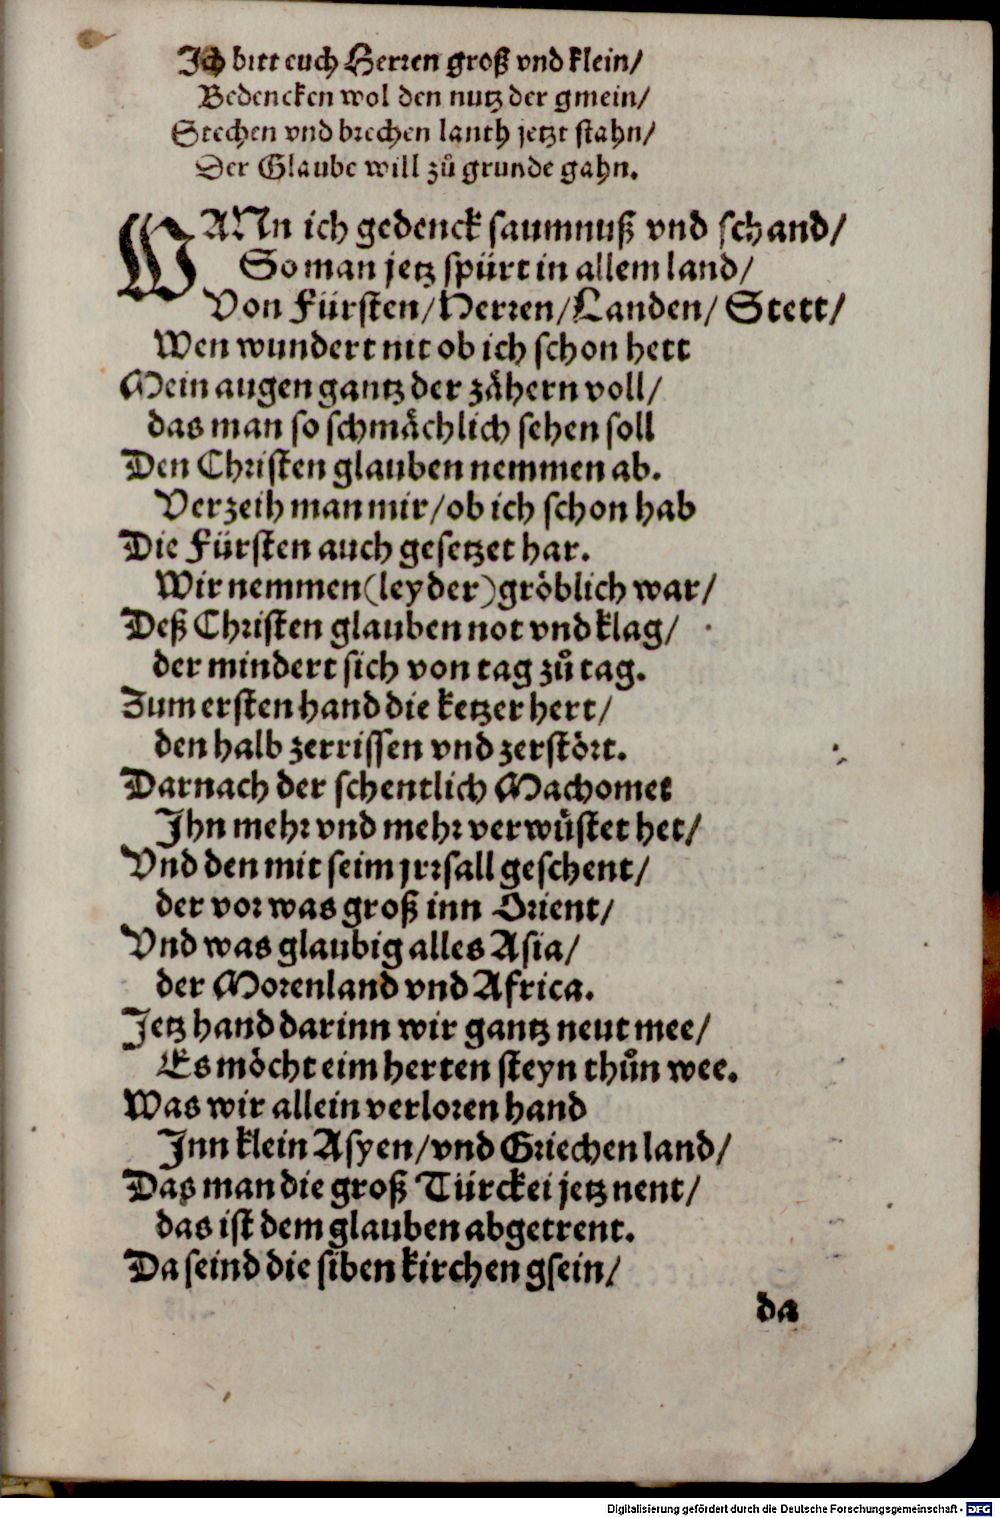 Ich bitt euch Herren groß vnd klein/
Bedencken wol den nutz der gmein/
Stechen vnd brechen lanth jetzt stahn/
Der Glaube will zů grunde gahn.
WANn ich gedenck saumnuß vnd schand/
So man jetz spürt in allem land/
Von Fürsten/Herren/Landen/ Stett/
Wen wundert nit ob ich schon hett
Mein augen gantz der zähern voll/
das man so schmächlich sehen soll
Den Christen glauben nemmen ab.
Verzeih man mir/ob ich schon hab
Die Fürsten auch gesetzet har.
Wir nemmen(leyder)gröblich war/
Deß Christen glauben not vnd klag/
der mindert sich von tag zů tag.
Zum ersten hand die ketzer hert/
den halb zerrissen vnd zerstört.
Darnach der schentlich Machomet
Ihn mehr vnd mehr verwüstet het/
Vnd den mit seim jrrsall geschent/
der vor was groß inn Orient/
Vnd was glaubig alles Asia/
der Morenland vnd Africa.
Jetz hand darinn wir gantz neut mee/
Es möcht eim herten steyn thůn wee.
Was wir allein verloren hand
Inn klein Asyen/vnd Griechen land/
Das man die groß Türckei jetz nent/
das ist dem glauben abgetrent.
Da seind die siben kirchen gsein/
da
Digitalisierung gefördert durch die Deutsche Forschungsgemeinschaft - DFG